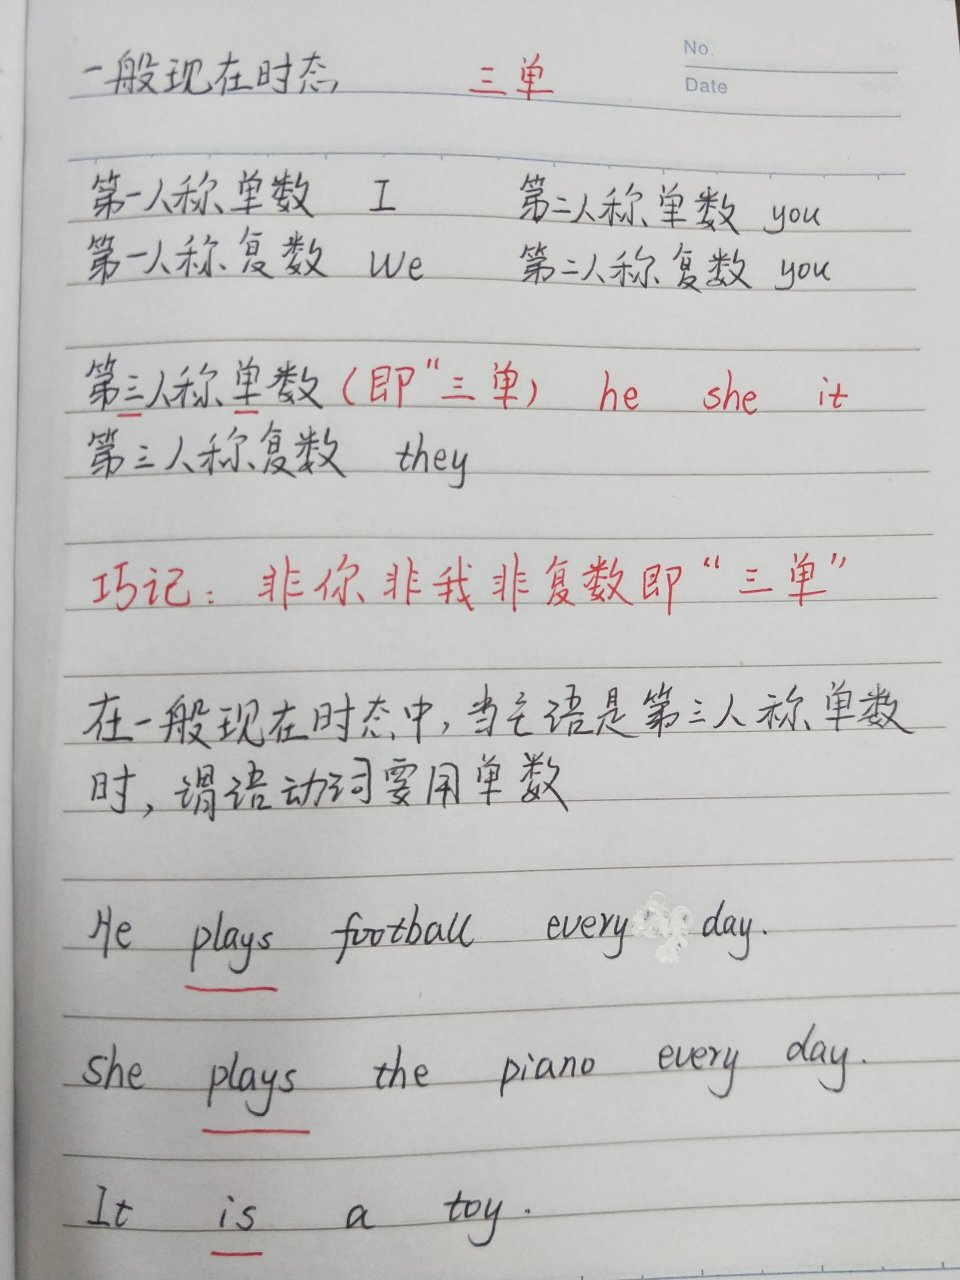 一般现在时态 三单
No.
Date
第一人称单数 I 第二人称单数 you
第一人称复数 we 第二人称复数 you
第三人称单数(即“三单) he she it
第三人称复数 they
巧记: 非你非我非复数即“三单”
在一般现在时态中,当主语是第三人称单数
时,谓语动词要用单数
He plays football every day.
She plays the piano every day.
It is a toy.